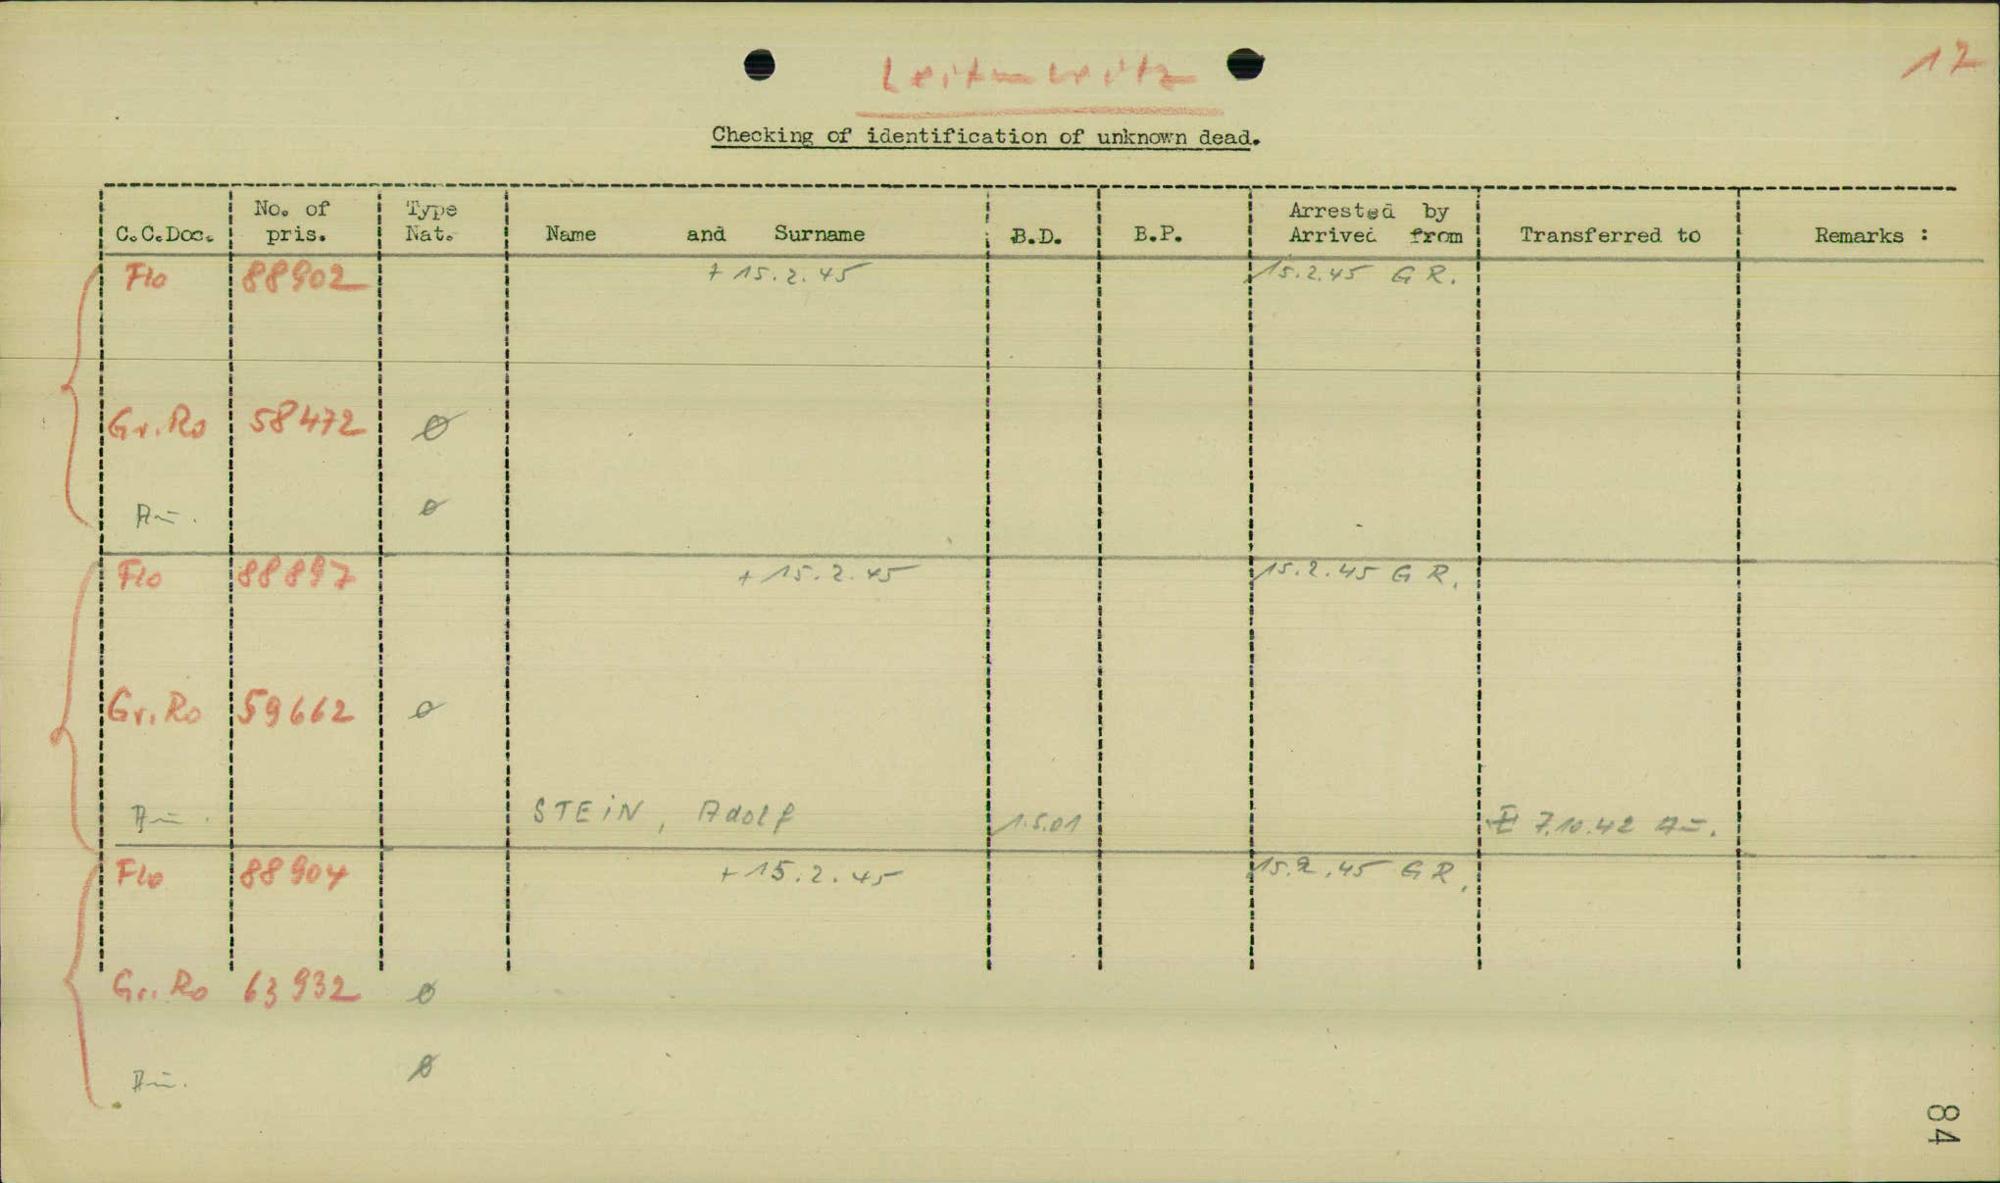 Leitmeritz
12
Checking of identification of unknown dead.
C.C.Doc. No. of pris. Type Nat. Name and Surname B.D. B.P. Arrested by Arrived from Transferred to Remarks :
Flo 88902 + 15.2.45 15.2.45 G R.
Gr.Ro 58472 Ø
Au. Ø
Flo 88897 + 15.2.45 15.2.45 G R.
Gr.Ro 59662 Ø
Au. STEiN, Adolf 1.5.01 7.10.42 Au.
Flo 88904 + 15.2.45 15.2.45 G R.
Gr.Ro 63932 Ø
Au. Ø
84